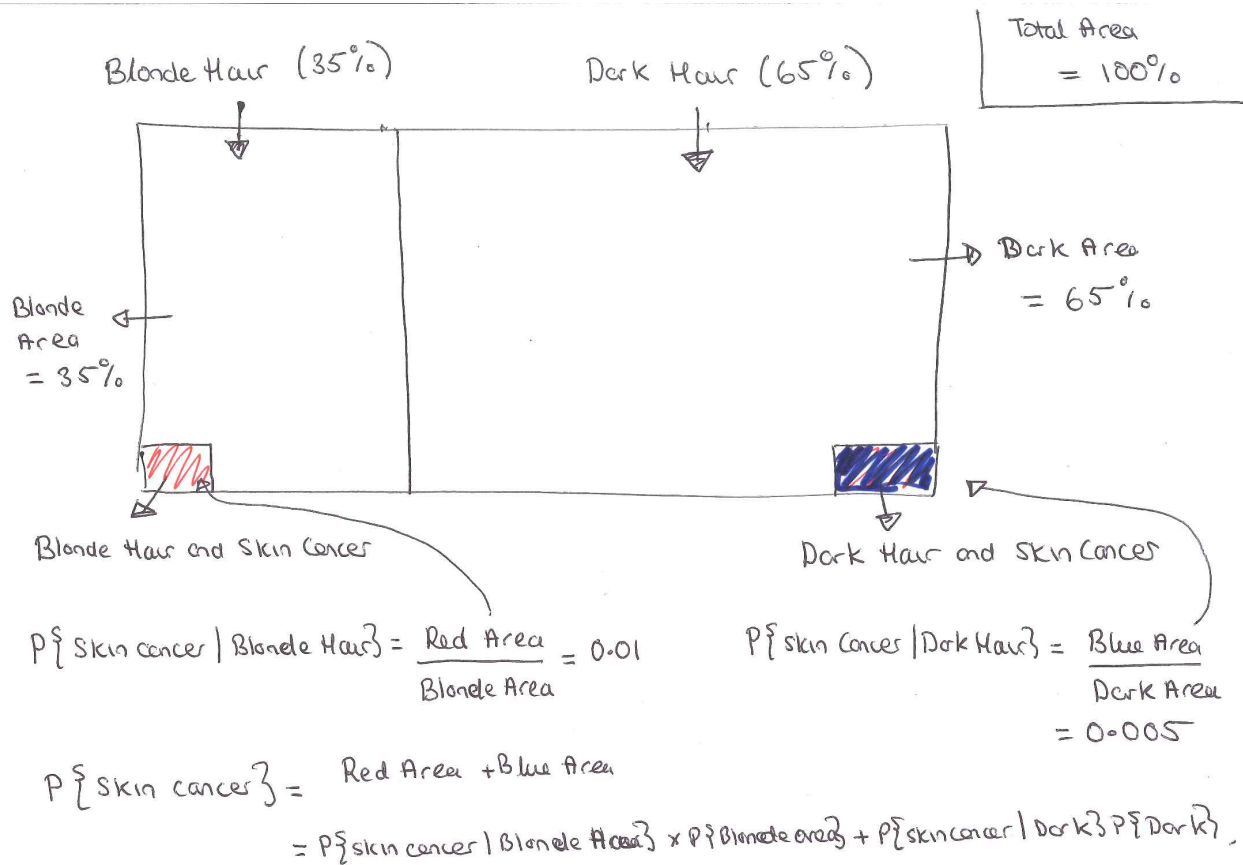 Total Area
= 100%
Blonde Hair (35%)
Dark Hair (65%)
Dark Area
= 65%
Blonde
Area
= 35%
Blonde Hair and Skin Cancer
Dark Hair and Skin Cancer
P{Skin cancer | Blonde Hair} = Red Area / Blonde Area = 0.01
P{skin Cancer | Dark Hair} = Blue Area / Dark Area
= 0.005
P{Skin cancer} = Red Area + Blue Area
= P{skin cancer | Blonde Area} x P{Blonde area} + P{skin cancer | Dark} P{Dark}.